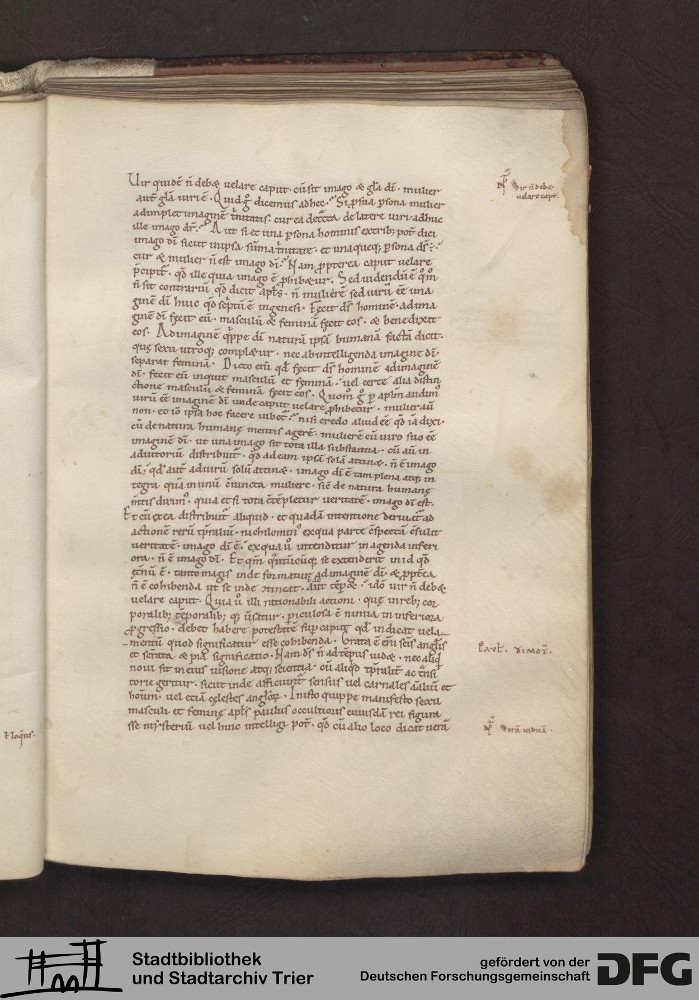 Vir quidē ñ debet velare caput. cū sit imago & gl̄a dī. mulier
aut̄ gl̄a uiri ē. Quid g̊ dicemus ad hec. Si p sua psona mulier
adimplet imaginē trinitatis. cur ea detcta de latere uiri adhuc
ille imago dr̄. Aut si et una psona hominis ex trib; pot̄ dici
imago dī sicut in ipsa sūma trinitate. et una queq; psona ds̄ ē.
cur & mulier ñ est imago dī. Nam ppterea caput velare
pcipit̄. qd̄ ille quia imago ē phibet̄ur. Sed uidendū ē qm̄
ñ sit contrariū qd̄ dicit apl̄s. ñ mulierē sed uirū eē ima
ginē dī huic qd̄ sc̄ptū ē in genesi. Fecit ds̄ hominē. ad ima
ginē dī fecit eū. masculū & feminā fecit eos. & benedixit
eos. Ad imaginē q̄ppe dī naturā ipsā humanā factā dicit.
quę sexu utroq; complet̄ur. nec ab intelligenda imagine dī.
separat feminā. Dicto enī qd̄ fecit ds̄ hominē ad imaginē
dī. fecit eū inquit masculū et feminā. vel certe alia distin
ctione masculū & feminā fecit eos. Quom̊ g̊ p aplm̄ audiui
uirū eē imaginē dī unde caput velare phibetur. mulierē aū
non. et iō ipsa hoc facere iubet̄. nisi credo aliud eē qd̄ iā dixi.
cū de natura humanę mentis agerē. mulierē cū uiro suo eē
imaginē dī. ut una imago sit tota illa substantia. cū aū in
adiutoriū distribuit̄. qd̄ ad eam ipsā solā attinet. ñ ē imago
dī. qd̄ aut̄ ad uirū solū attinet. imago dī ē tam plena atq; in
tegra quā in unū ciuncta muliere. sic̄ de natura humanę
mtis diximꝰ. quia et si tota cteplet̄ur veritatē. imago dī est.
Et cū ex ea distribuit̄ aliquid. et quadā intentione deriuat̄ ad
actionē rerū tp̄raliū. nichilominꝰ ex qua parte cspectā csulit
veritatē. imago dī ē. ex qua ů intenditur in agenda inferi
ora. ñ ē imago dī. Et qm̄ q̄ntūcūq; se extenderit in id qd̄
et̄nū ē. tanto magis inde formatur ad imaginē dī. & ppt̄ea
ñ ē cohibenda ut se inde ctineat. aut̄ tēpet. ido uir ñ debet
velare caput. Quia ů illi rationabili actioni. quę in reb; cor
poralib; tēporalib; q; ūsatur. piculosa ē nimia in inferiora
pgressio. debet habere potestatē sup caput. qd̄ indicat vela
mentū quod significatur esse cohibenda. Grata ē enī scīs anglīs
et sacrata & pia significatio. Nam ds̄ ñ ad tēpus uidet. nec aliq̄d
noui fit in eius uisione atq; scientia. cū aliqd̄ tp̄raliť ac trāsi
torie geritur. sicut inde afficiunt̄ sensus uel carnales aīaliū et
hoīum. vel etiā cęlestes anglorꝝ. In isto quippe manifesto sexu
masculi et feminę apl̄s paulus occultioris cuiusdā rei figura
sse mysteriū vel hinc intelligi pot̄. qd̄ cū alio loco dicat uerā
Vir ñ debet
uelare capt̄.
Paul̄. Timotͨ.
Verā uiduā.